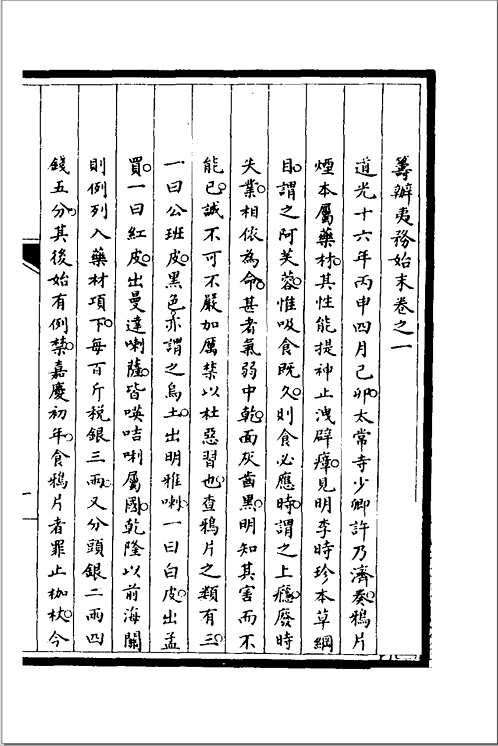 籌辦夷務始末卷之一
道光十六年丙申四月己卯。太常寺少卿許乃濟奏。鴉片
煙本屬藥材。其性能提神止洩辟瘴。見明李時珍本草綱
目。謂之阿芙蓉。惟吸食既久。則食必應時。謂之上癮。廢時
失業。相依為命。甚者氣弱中乾。面灰齒黑。明知其害而不
能已。誠不可不嚴加厲禁以杜惡習也。查鴉片之類有三。
一曰公班皮。黑色。亦謂之烏土。出明雅喇。一曰白皮。出孟
買。一曰紅皮。出曼達喇薩。皆暎咭唎屬國。乾隆以前海關
則例列入藥材項下。每百斤稅銀三兩。又分頭銀二兩四
錢五分。其後始有例禁。嘉慶初年。食鴉片者罪止枷杖。今